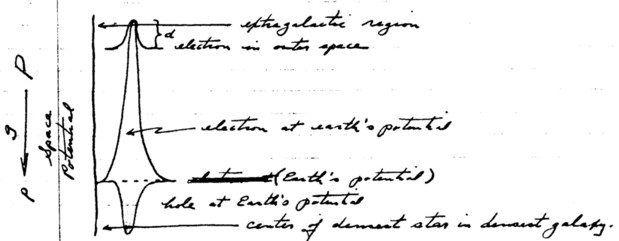 extragalactic region
d
electron in outer space
P
g
p
Space
Potential
electron at earth's potential
(Earth's potential)
hole at Earth's potential
center of densest star in densest galaxy.